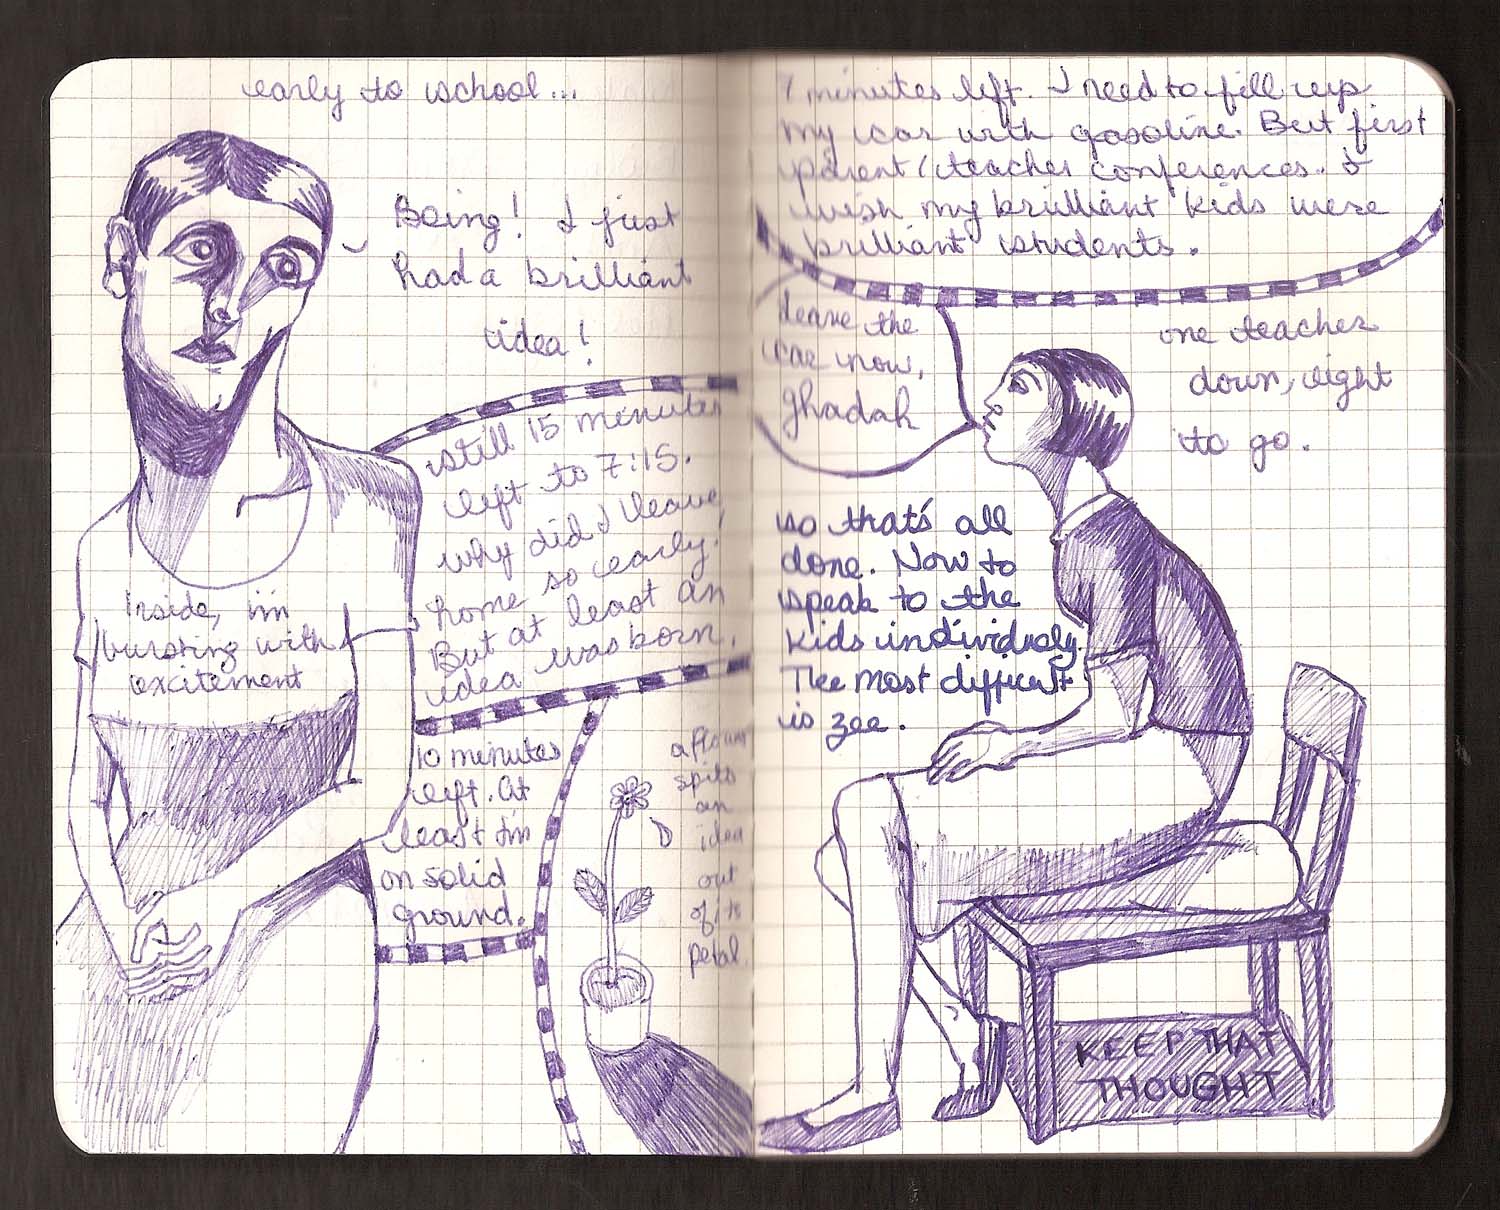 early to school...
Boing! I just
had a brilliant
idea!
still 15 minutes
left to 7:15.
why did I leave
home so early!
But at least an
idea was born.
Inside, i'm
bursting with
excitement
10 minutes
left. At
least I'm
on solid
ground.
a flower
spits
an
idea
out
of its
petal.
7 minutes left. I need to fill up
my car with gasoline. But first
parent/teacher conferences. I
wish my brilliant kids were
brilliant students.
leave the
car now,
ghadah
one teacher
down, eight
to go.
so that's all
done. Now to
speak to the
kids individualy.
The most difficult
is zee.
KEEP THAT
THOUGHT